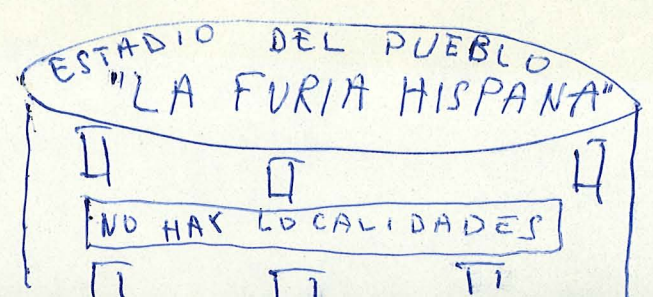 ESTADIO DEL PUEBLO
"LA FURIA HISPANA"
NO HAY LOCALIDADES